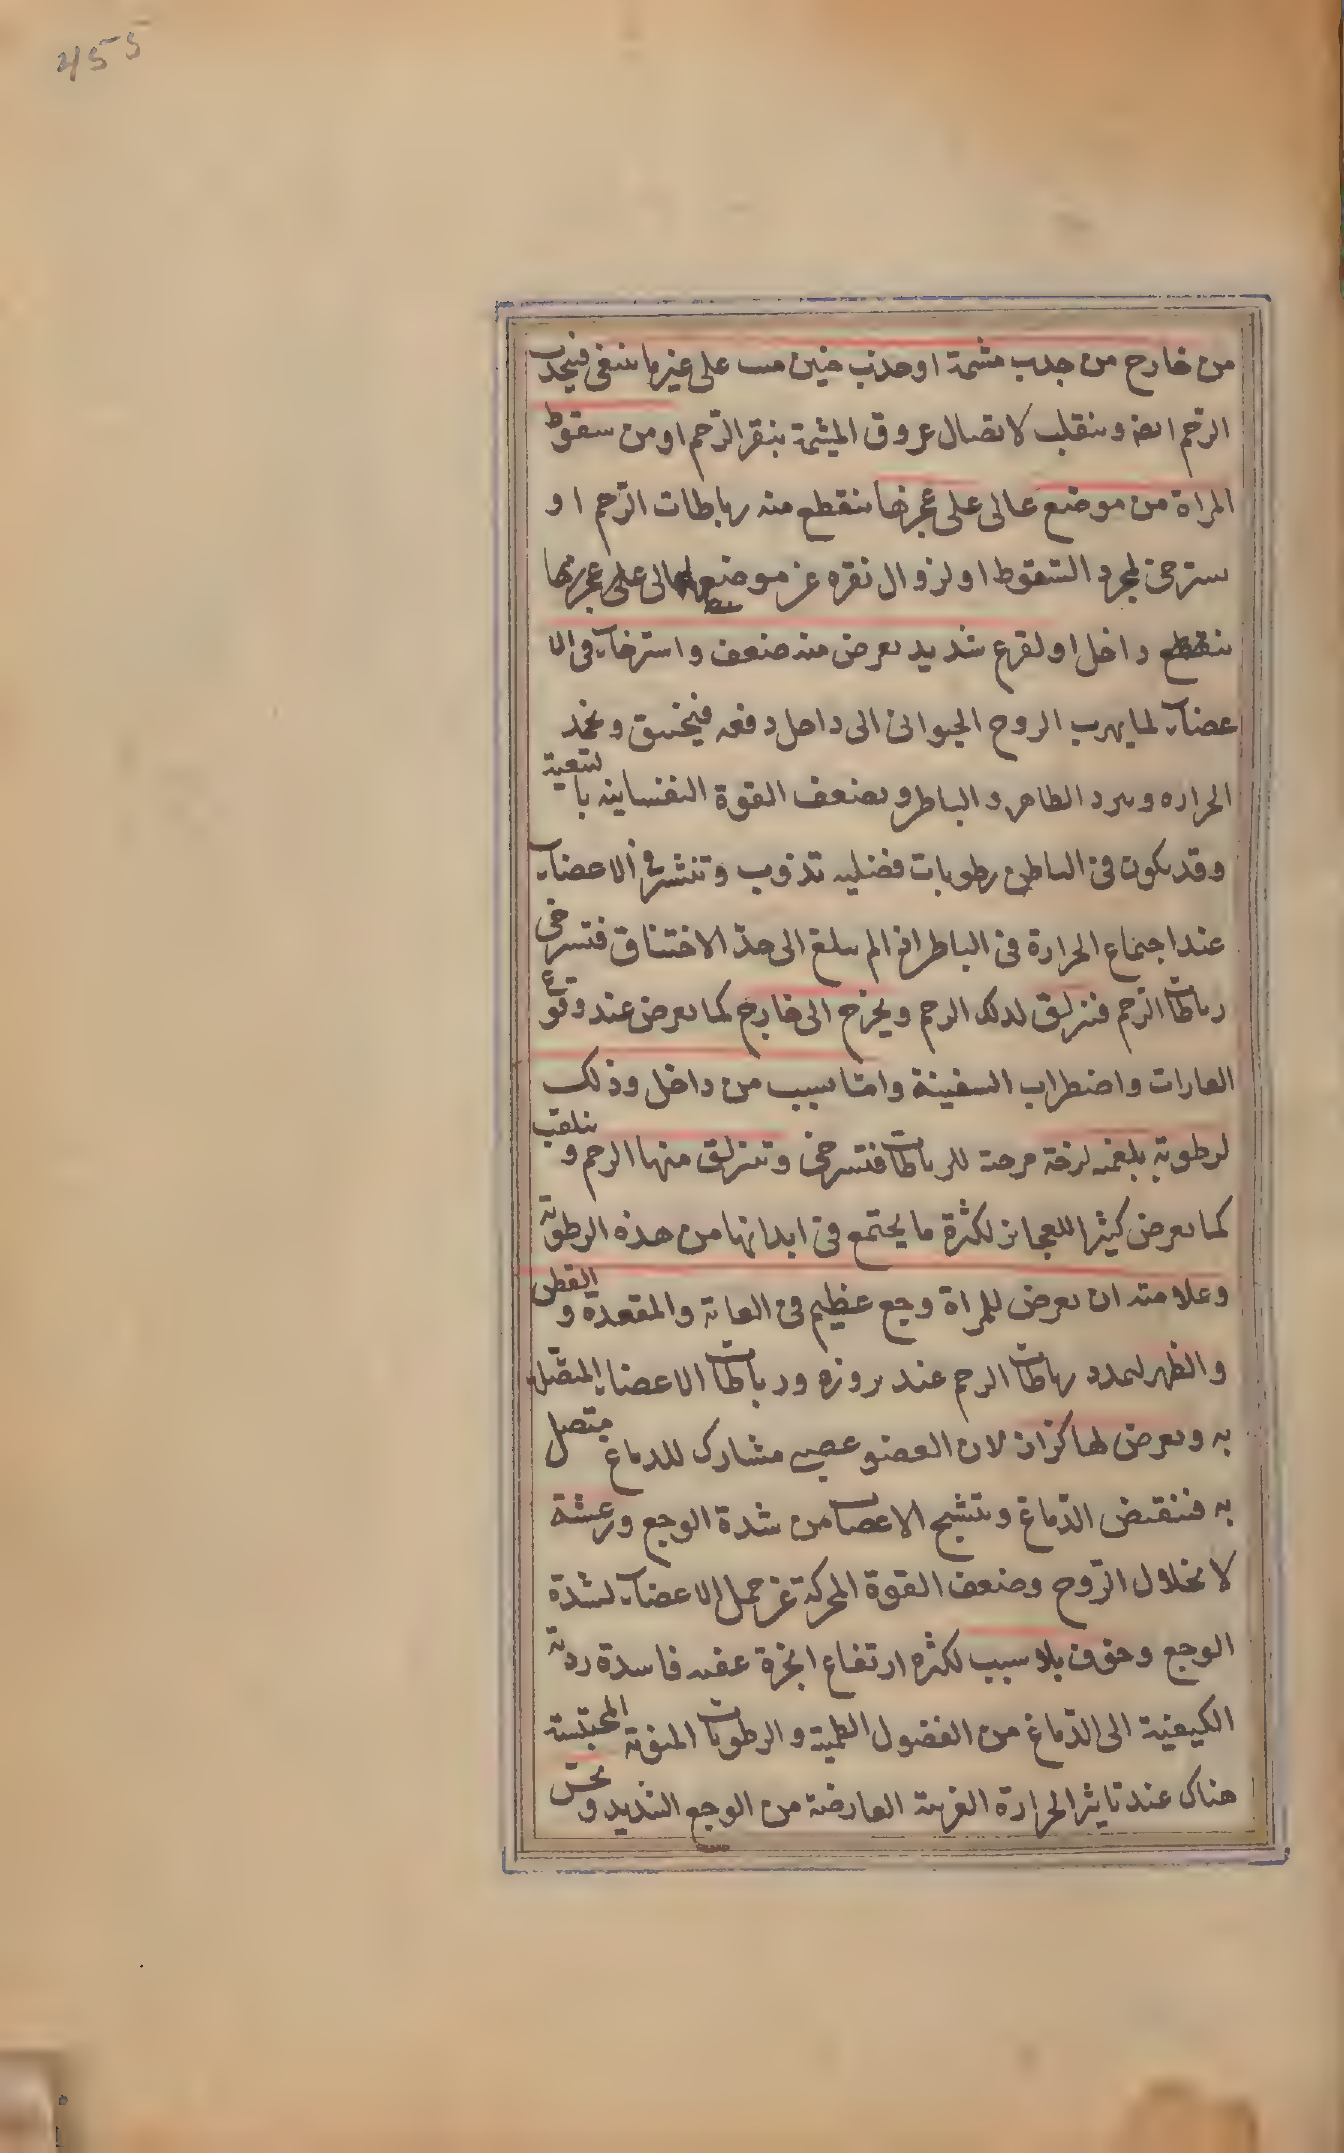 455
من خارج من جدب مشيمة او جذب جنين ميت على غير ما ينبغى فينجذب
الرحم ايضا وينقلب لاتصال عروق المشيمة بنقر الرّحم او من سقوط
المراة من موضع عالى على عجزها ينقطع منه رباطات الرّحم او
يسترخى لمجرد السّقوط او لزوال نقره عن موضع عالى على عجزها
ينقطع داخل او لقزع شديد يعرض منه ضعف واسترخاء فى الا
عضاء لما يهرب الروح الحيوانى الى داخل دفعه فيختنق ويخمد
الحراره ويبرد الظاهر والباطن ويضعف القوة النفسانيه بالتبعية
وقد يكون فى الباطن رطوبات فضليه تذوب وتنتشر فى الاعضاء
عند اجتماع الحرارة فى الباطن ان لم يبلغ الى حدّ الاختناق فتسترخى
رباطات الرّحم فتنزلق لذلك الرحم ويخرج الى خارج كما يعرض عند وقوع
الغارات واضطراب السفينة وامّا بسبب من داخل وذلك
لرطوبة بلغميه لزجة مرخية للرباطات فتسترخى وتنزلق منها الرحم وينقلب
كما يعرض كثيرا للعجائز لكثرة ما يجتمع فى ابدانها من هذه الرطوبة
وعلامته ان يعرض للمراة وجع عظيم فى العانة والمقعدة والقطن
والظهر لتمدد رباطات الرحم عند بروزه ورباطات الاعضاء المتّصلة
به ويعرض لها كزاز لان العضو عصبى مشارك للدماغ متصل
به فينقبض الدّماغ ويتشنج الاعصاب من شدة الوجع ورعشة
لانحلال الرّوح وضعف القوة المحركة عن حمل الاعضاء لشدة
الوجع وخوف بلا سبب لكثره ارتفاع ابخرة عفنه فاسدة رديّة
الكيفية الى الدّماغ من الفضول الطمثية والرطوبات المنوية المحتبسة
هناك عند تاثير الحرارة الغريبة العارضة من الوجع الشديد و